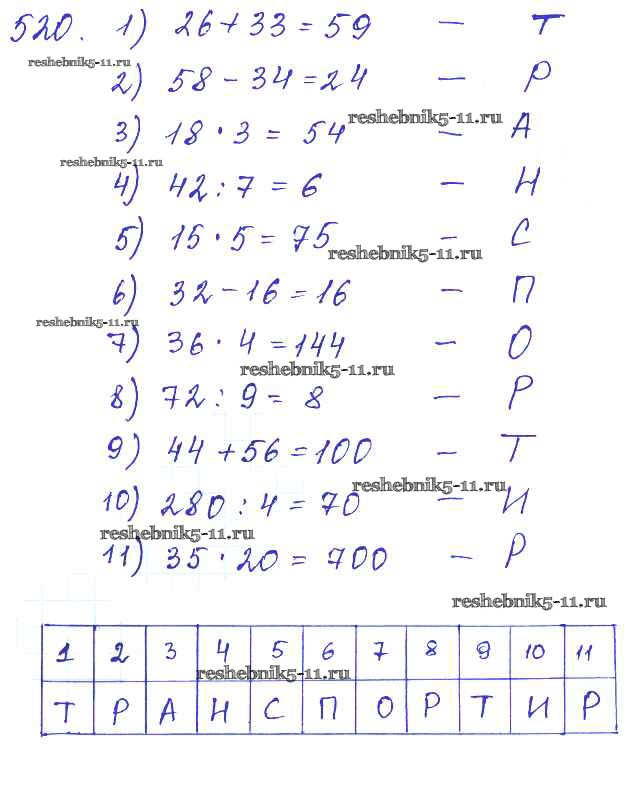 520. 1) 26 + 33 = 59 — Т
reshebnik5-11.ru
2) 58 - 34 = 24 — Р
reshebnik5-11.ru
3) 18 · 3 = 54 — А
reshebnik5-11.ru
4) 42 : 7 = 6 — Н
5) 15 · 5 = 75 — С
reshebnik5-11.ru
6) 32 - 16 = 16 — П
reshebnik5-11.ru
7) 36 · 4 = 144 — О
reshebnik5-11.ru
8) 72 : 9 = 8 — Р
9) 44 + 56 = 100 — Т
reshebnik5-11.ru
10) 280 : 4 = 70 — И
reshebnik5-11.ru
11) 35 · 20 = 700 — Р
reshebnik5-11.ru
1 2 3 4 5 6 7 8 9 10 11
reshebnik5-11.ru
Т Р А Н С П О Р Т И Р